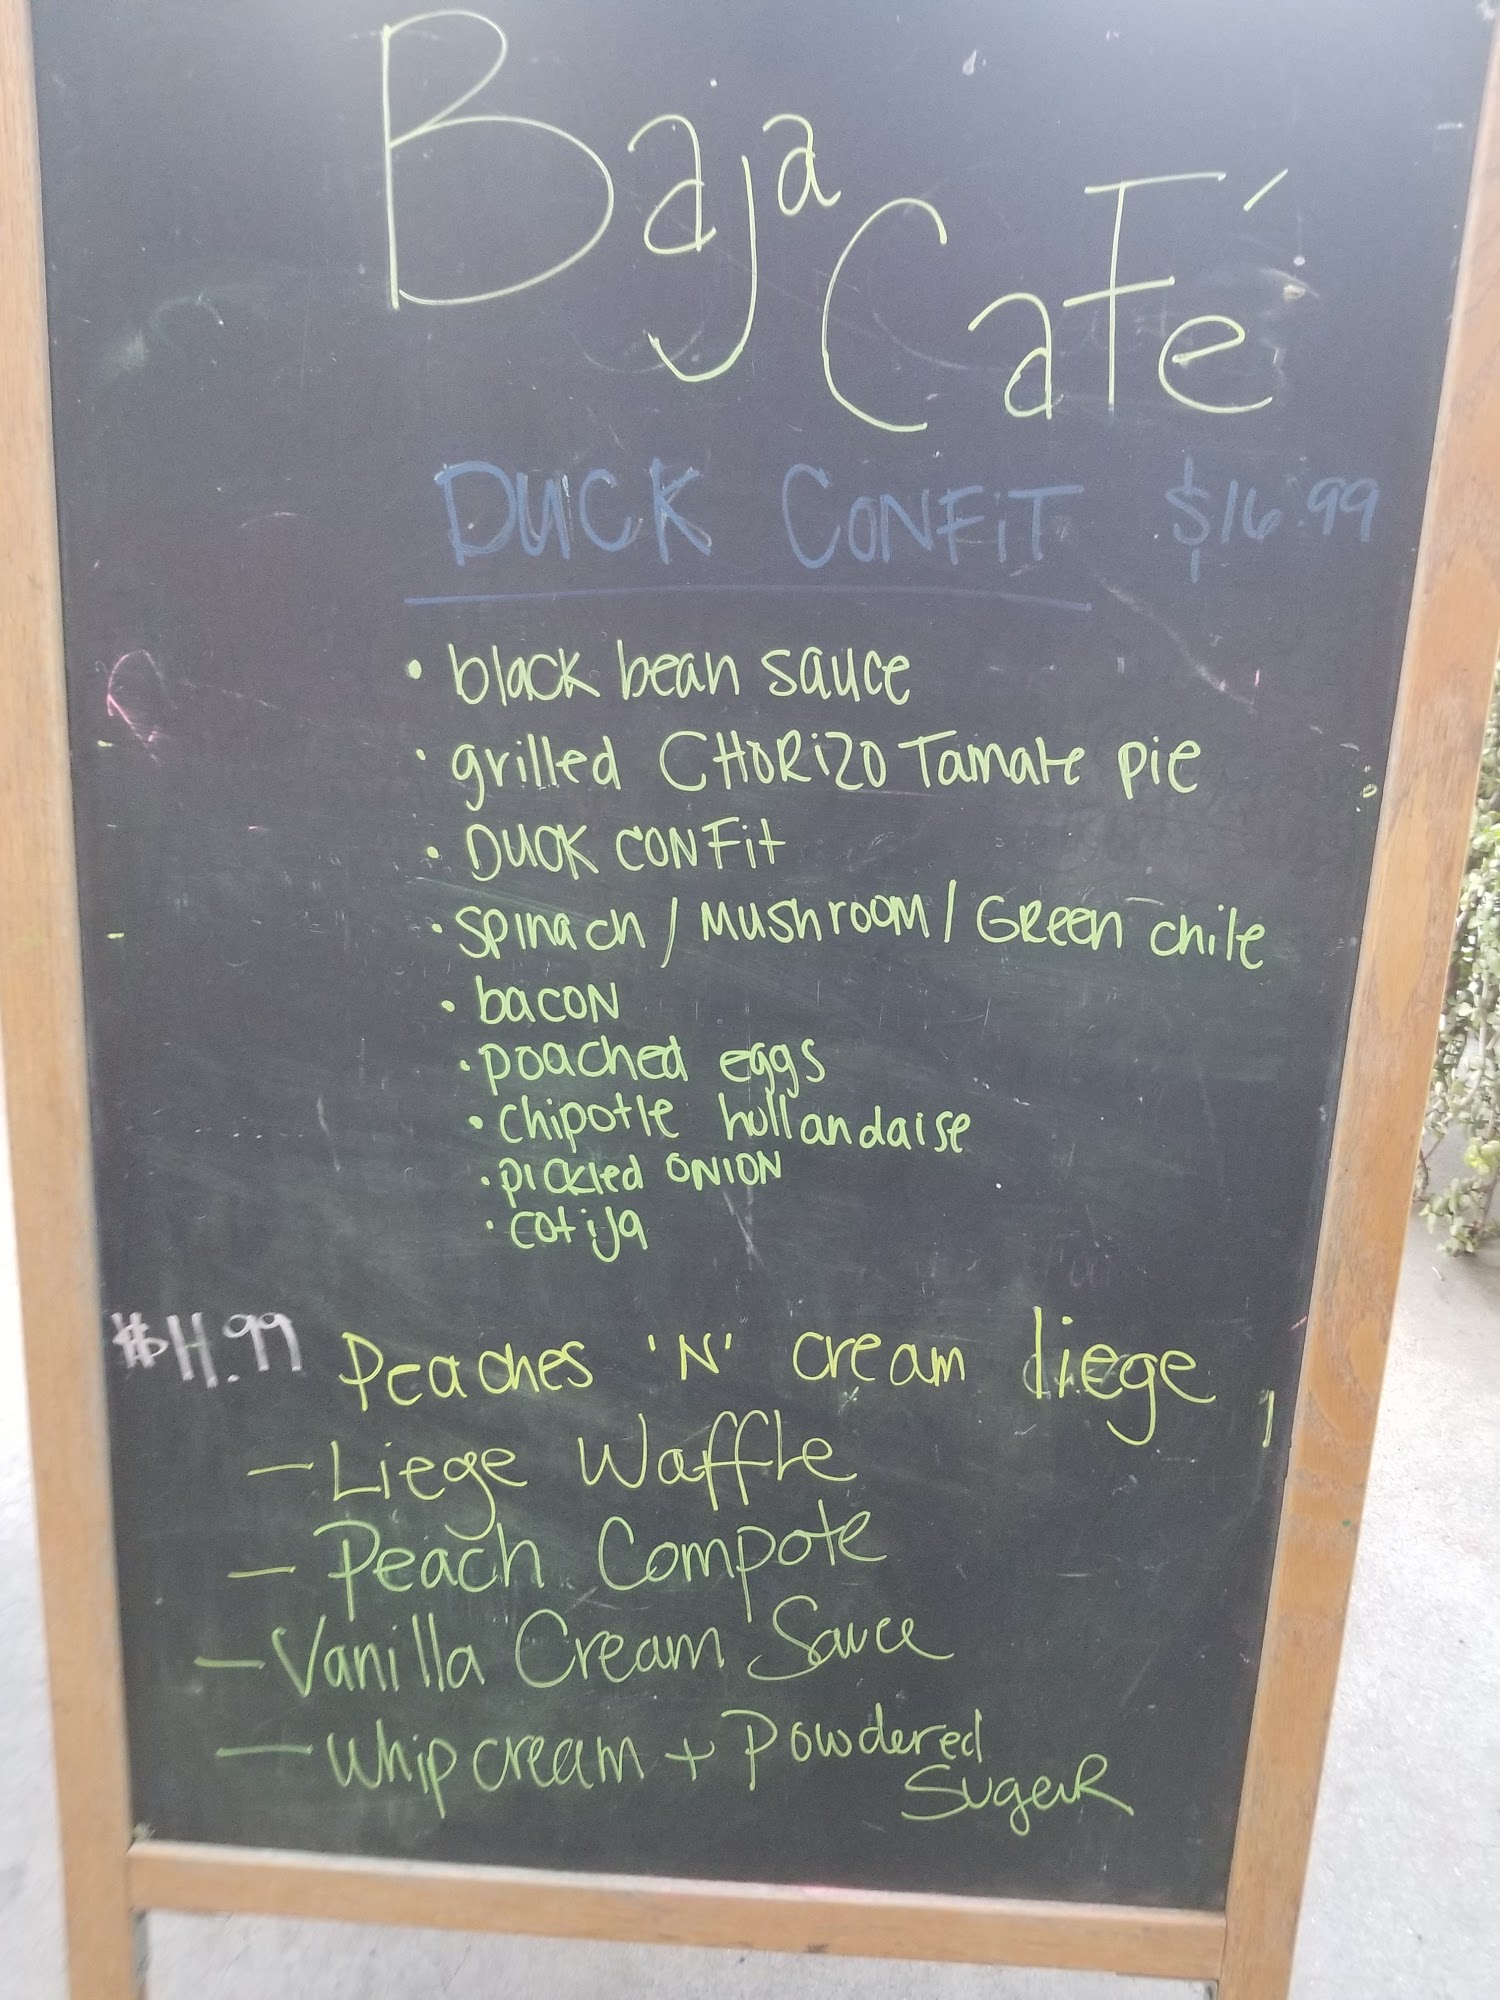 Baja
Café
DUCK CONFiT $16.99
• black bean sauce
• grilled CHORiZO Tamale pie
• DUCK CONFit
• spinach / MUSHROOM / GReen chile
• bacon
• poached eggs
• chipotle hollandaise
• pickled ONION
• cotija
Peaches 'N' cream liege
– Liege Waffle
– Peach Compote
– Vanilla Cream Sauce
– whip cream + Powdered
SugeR